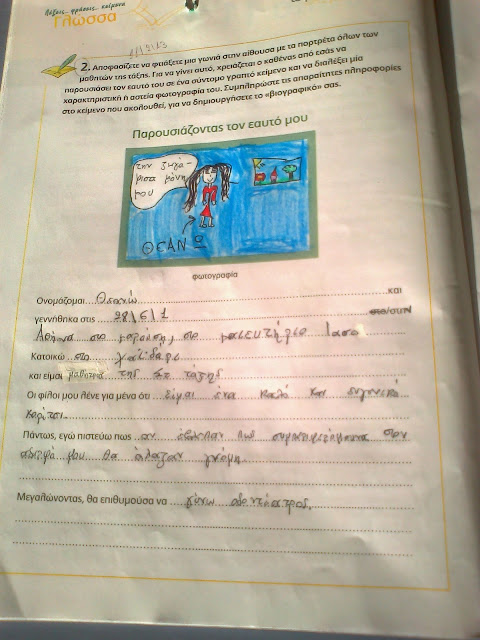 Λέξεις... φράσεις... κείμενα
Γλώσσα
2. Αποφασίζετε να φτιάξετε μια γωνιά στην αίθουσα με τα πορτρέτα όλων των
μαθητών της τάξης. Για να γίνει αυτό, χρειάζεται ο καθένας από εσάς να
παρουσιάσει τον εαυτό του σε ένα σύντομο γραπτό κείμενο και να διαλέξει μία
χαρακτηριστική ή αστεία φωτογραφία του. Συμπληρώστε τις απαραίτητες πληροφορίες
στο κείμενο που ακολουθεί, για να δημιουργήσετε το «βιογραφικό» σας.
Παρουσιάζοντας τον εαυτό μου
την ζωγρά-
φισα μόνη
μου
ΘΕΑΝΩ
φωτογραφία
Ονομάζομαι Θεανώ και
γεννήθηκα στις 28/6/1 στο/στην
Αθήνα στο μαρούσι, στο μαιευτήριο Ιασώ
Κατοικώ στο χαϊδάρι
και είμαι μαθήτρια της στ τάξης
Οι φίλοι μου λένε για μένα ότι είμαι ένα καλό και ευγενικό
κορίτσι
Πάντως, εγώ πιστεύω πως αν έβλεπαν πως συμπεριφέρομαι στον
αδερφό μου θα άλλαζαν γνώμη
Μεγαλώνοντας, θα επιθυμούσα να γίνω οδοντίατρος.